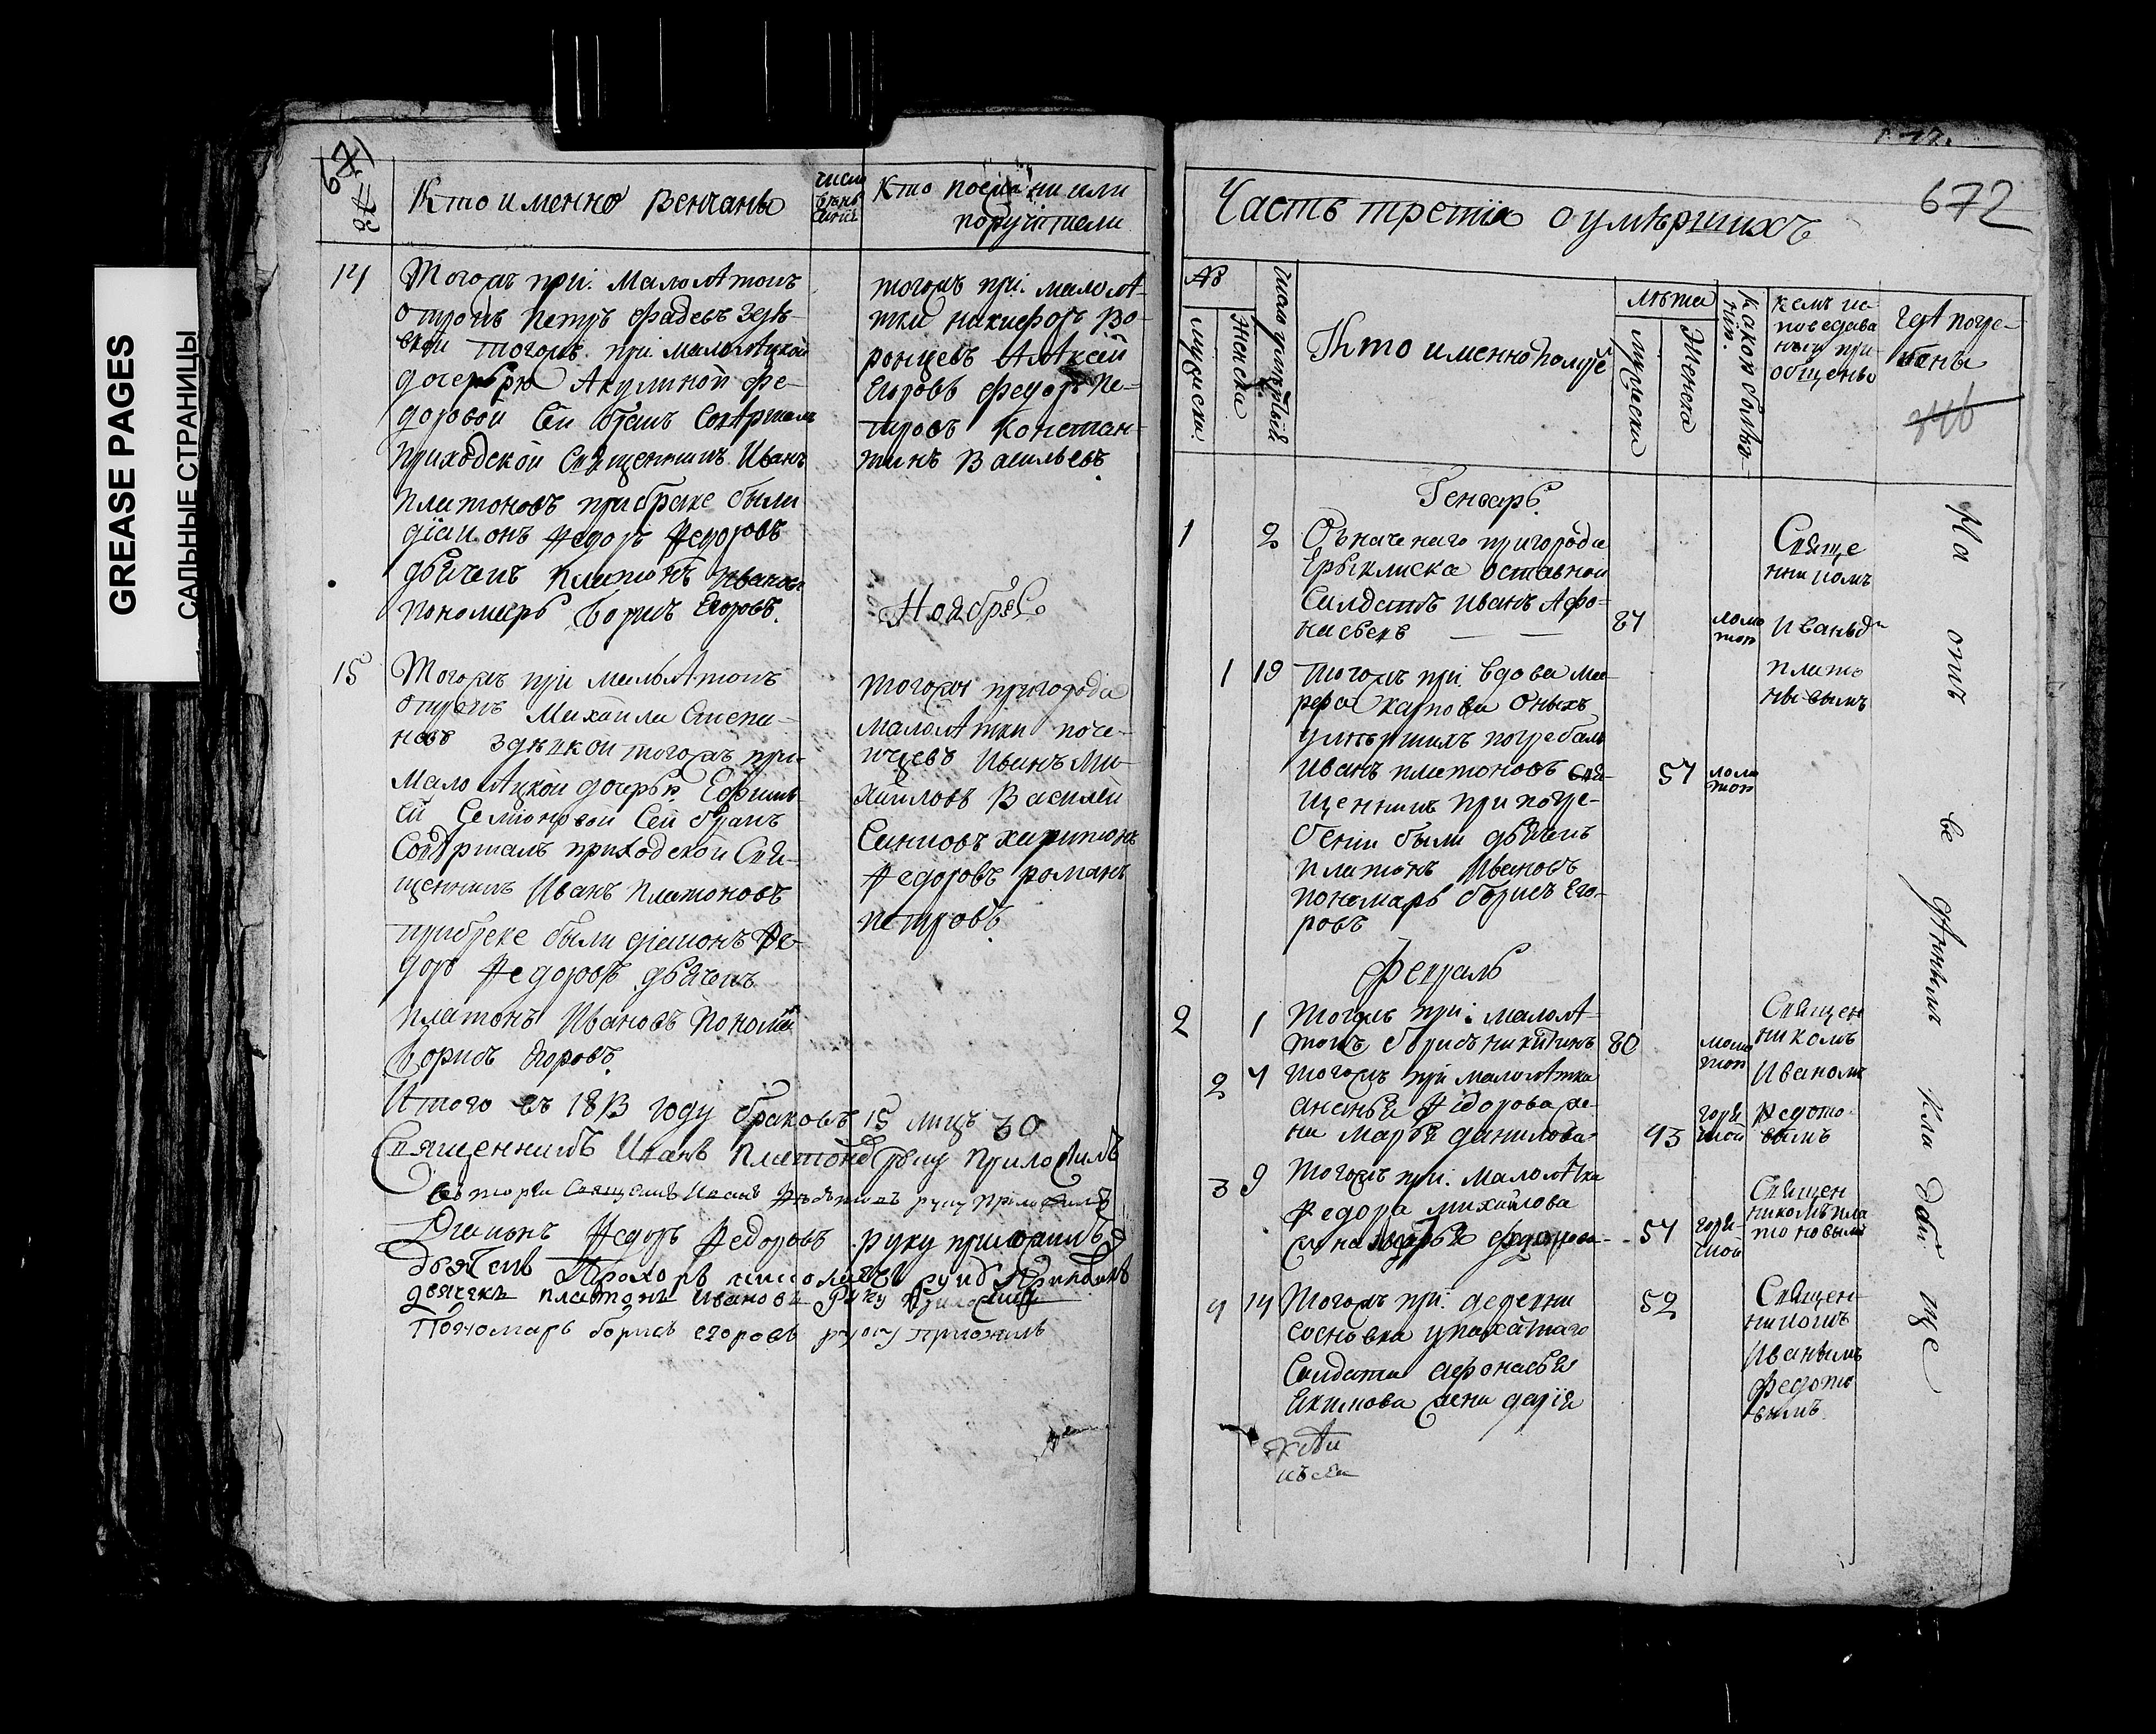 GREASE PAGES
САЛЬНЫЕ СТРАНИЦЫ
671
№
Кто именно венчаны
число
Кто поезжани или
поручители
14
Тогожъ при. Малолѣтокъ
отрокъ Петръ Фадеевъ
тогожъ при малолѣцкой
дочерью Акулиной Фе-
доровой Сей бракъ Совѣршалъ
приходской Священникъ Иванъ
Платоновъ при браке были
діаконъ Ѳедоръ Ѳедоровъ
дьячекъ Платонъ Ивановъ
пономарь Борисъ Егоровъ.
тогожъ при. малолѣ-
тки никифоръ Во-
ронцевъ Алѣксей
Егоровъ Федоръ Пе-
тровъ Констан-
тинъ Васильевъ.
Ноябрь
15
Тогожъ при малолѣтокъ
отрокъ Михайла Степа-
новъ здѣвкой тогожъ при
малолѣцкой дочерью Ефимь-
ей Семионовой Сей бракъ
Совѣршалъ приходской Свя-
щенникъ Иванъ Платоновъ
прибраке были діаконъ Ѳе-
доръ Ѳедоровъ дьячекъ
Платонъ Ивановъ Пономарь
Борисъ Егоровъ.
тогожъ пригорода
малолѣтки поче-
Иванъ Ми-
хайловъ Василей
харитонъ
Ѳедоровъ романъ
петровъ
Итого въ 1813 году браковъ 15 лицъ 30
Священникъ Иванъ Платоновъ руку приложилъ
Священникъ Иванъ руку приложилъ
Диаконъ Ѳедоръ Ѳедоровъ руку приложилъ
Дьячекъ Прохоръ руку приложилъ
дьячекъ платонъ ивановъ руку приложилъ
Пономарь борисъ егоровъ руку приложилъ
672
Часть третіа о умѣршихъ
№
мужеска
Женска
число умертвій
Кто именно помре
лѣта
мужеска
Женска
какою болѣз-
нію.
кемъ ис-
поведава
ныи при-
общены
гдѣ погре-
бены
Генварь.
1
2
Означенаго пригорода
Ерыклиска оставной
Салдатъ Иванъ Афо-
насьевъ
87
ломо
тою
Свяще
нникомъ
Иваномъ
плато
новымъ
1 19
тогожъ при вдова Ма-
рфа карпова оныхъ
умѣршихъ погребалъ
Иванъ платоновъ Свя-
щенникъ при погре-
бении были дьячекъ
платонъ Ивановъ
пономарь борисъ Его-
ровъ
57
ломо
тою
Февраль
2
1
Тогожъ при. малолѣ-
токъ борисъ никитинъ
80
ломо
тою
Священ
никомъ
Иваномъ
Ѳедото-
вымъ
2 4
Тогожъ при малолѣтка
ананья Ѳедорова же-
на Марья данилова
43
горя
чкой
3 9
Тогожъ при. Малолѣтка
Ѳедора михайлова
жена
57
горя-
чкой
Священ
никомъ пла
тоновымъ
4 14
Тогожъ при. деревни
сосновка
Салдата афонасья
Екимова жена дарія
52
Священ-
никомъ
Иванымъ
Федото
вымъ
На отъ ве денномъ кла дби ще